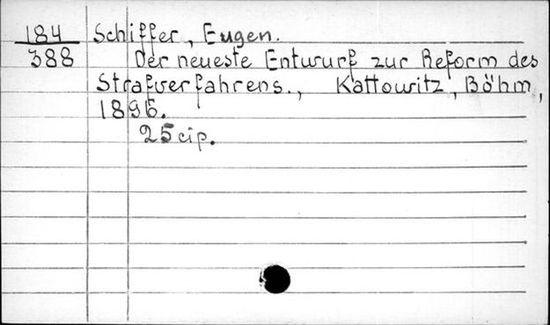 184 Schiffer, Eugen.
388 Der neueste Entwurf zur Reform des
Strafverfahrens., Kattowitz, Böhm,
1896.
25 cip.